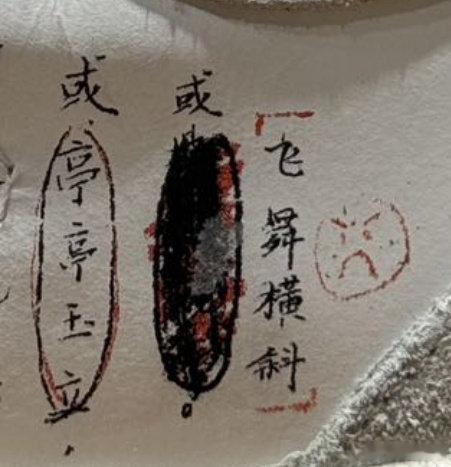 或亭亭玉立，
或
「飞舞横斜」